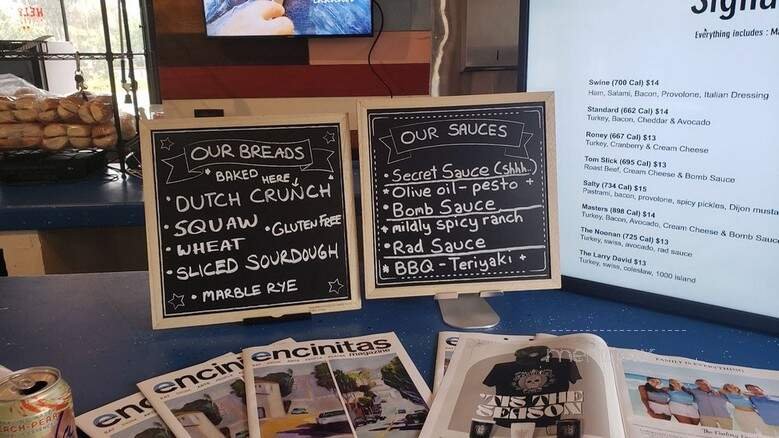 HELP
OUR BREADS
BAKED HERE
DUTCH CRUNCH
• SQUAW
• GLUTEN FREE
• WHEAT
• SLICED SOURDOUGH
• MARBLE RYE
OUR SAUCES
• Secret Sauce (Shhh..)
* Olive oil - pesto +
• Bomb Sauce
* mildly spicy ranch
• Rad Sauce
* BBQ - Teriyaki +
Everything includes : Ma
Swine (700 Cal) $14
Ham, Salami, Bacon, Provolone, Italian Dressing
Standard (662 Cal) $14
Turkey, Bacon, Cheddar & Avocado
Roney (667 Cal) $13
Turkey, Cranberry & Cream Cheese
Tom Slick (695 Cal) $13
Roast Beef, Cream Cheese & Bomb Sauce
Salty (734 Cal) $15
Pastrami, bacon, provolone, spicy pickles, Dijon must
Masters (898 Cal) $14
Turkey, Bacon, Avocado, Cream Cheese & Bomb Sauce
The Noonan (725 Cal) $13
Turkey, swiss, avocado, rad sauce
The Larry David $13
Turkey, swiss, coleslaw, 1000 island
enc
encin
encinitas
magazine
e
'TIS THE
SEASON
FAMILY IS EVERYTHING